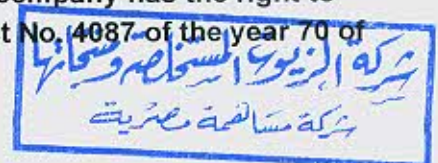 company has the right to
t No. 4087 of the year 70 of
شركة الزيوت المستخلصة ومنتجاتها
شركة مساهمة مصرية